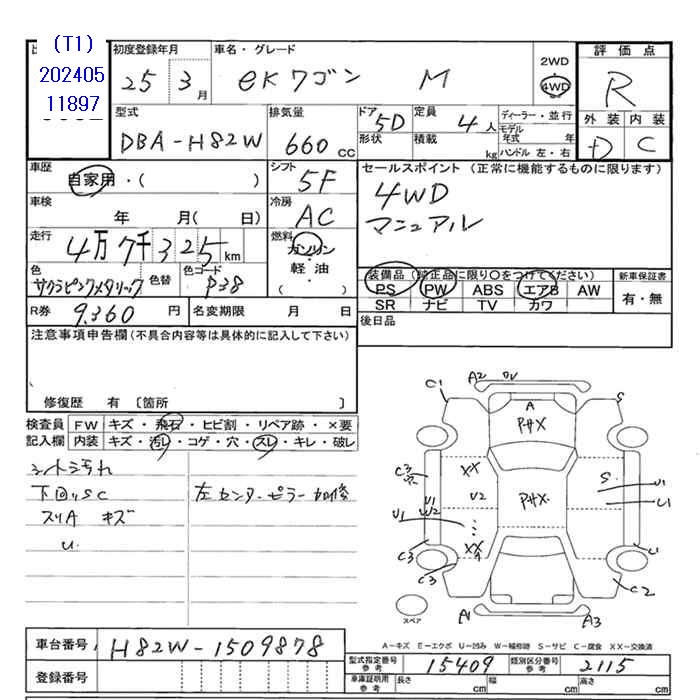 (T1)
202405
11897
初度登録年月
25 3月
車名・グレード
eKワゴン M
2WD
4WD
評価点
R
外装 内装
D C
型式
DBA-H82W
排気量
660 cc
ドア 5D
形状
定員 4人
積載 kg
ディーラー・並行
モデル年式 年
ハンドル 左・右
車歴
自家用・( )
シフト
5F
セールスポイント(正常に機能するものに限ります)
4WD
マニュアル
車検
年 月( 日)
冷房
AC
走行
4万7千325km
燃料
ガソリン・軽油・( )
色
サクラピンクメタリック
色替
色コード
P38
装備品(純正品に限り○をつけてください)
PS PW ABS エアB AW
SR ナビ TV カワ
新車保証書
有・無
R券 9,360 円
名変期限 月 日
後日品
注意事項申告欄(不具合内容等は具体的に記入して下さい)
修復歴 有 〔箇所 〕
検査員記入欄
FW キズ・飛石・ヒビ割・リペア跡・×要
内装 キズ・汚レ・コゲ・穴・スレ・キレ・破レ
シート汚れ
下回りSC
スリA キズ
U.
左センターピラー加修
C1 A2 S
A
PHX
C3
XX
U2
PHX
S
U1
U1
U1
W2
U1
XX
C3
C3
U
C2
A1
A3
スペア
A-キズ E-エクボ U-凹み W-補修跡 S-サビ C-腐食 XX-交換済
車台番号 H82W-1509878
登録番号
型式指定番号 参考 15409
類別区分番号 参考 2115
車庫証明用 参考 長さ cm 幅 cm 高さ cm